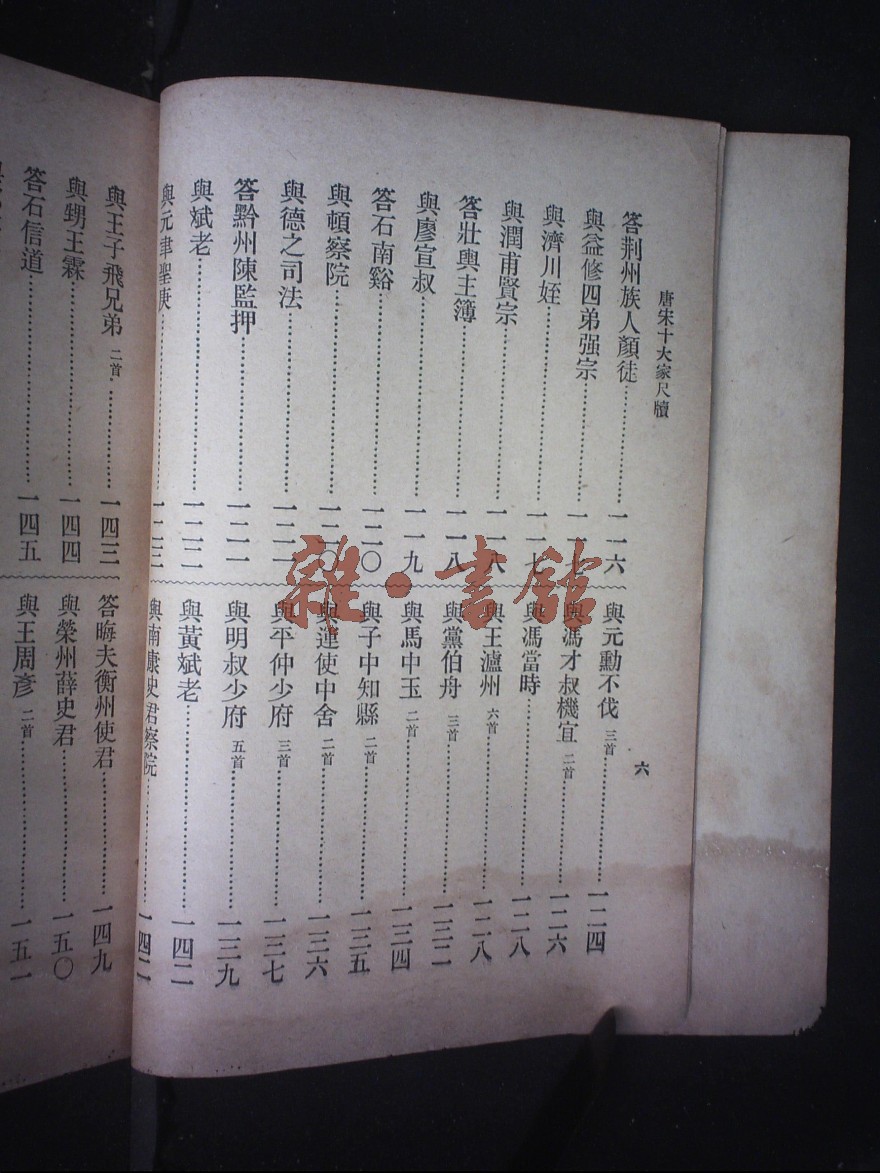 唐宋十大家尺牘
六
答荆州族人顏徒……一一六
與益修四弟强宗……一一七
與濟川姪……一一七
與潤甫賢宗……一一八
答壯輿主簿……一一八
與廖宣叔……一一九
答石南谿……一二〇
與頓察院……一二〇
與德之司法……一二一
答黔州陳監押……一二一
與斌老……一二二
與元聿聖庚……一二三
與元勳不伐 三首……一二四
與馮才叔機宜 二首……一二六
與馮當時……一二八
與王瀘州 六首……一二八
與黨伯舟 三首……一三二
與馬中玉 二首……一三四
與子中知縣 二首……一三五
與運使中舍 二首……一三六
與平仲少府 三首……一三七
與明叔少府 五首……一三九
與黃斌老……一四二
與南康史君察院……一四二
與王子飛兄弟 二首……一四三
與甥王霖……一四四
答石信道……一四五
答晦夫衡州使君……一四九
與榮州薛史君……一五〇
與王周彥 二首……一五一
雜·書館